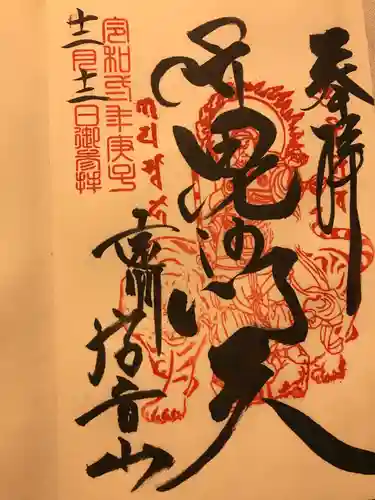 奉拝
毘沙門天
令和弐年庚子
十二月十二日御参拝
音山